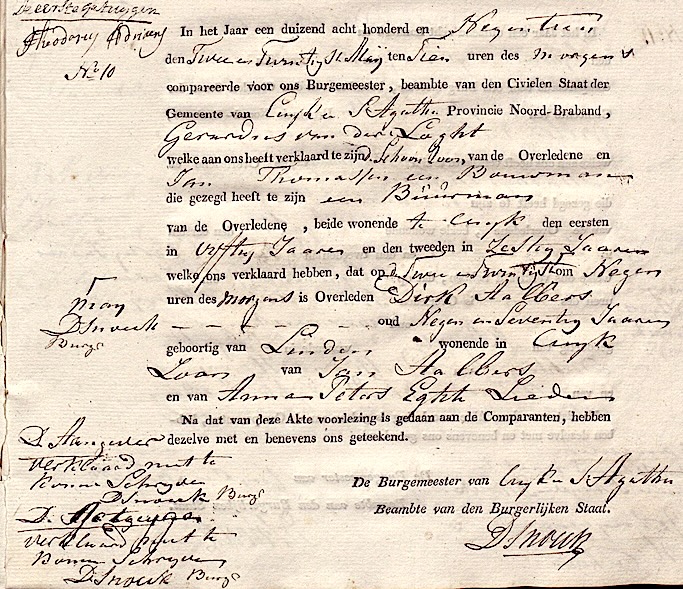 Theodorus Adriaens
No 10
In het Jaar een duizend acht honderd en Negentien
den Twee en Twintigste Maij ten Tien uren des morgens
compareerde voor ons Burgemeester, beambte van den Civielen Staat der
Gemeente van Cuyk en St Agatha Provincie Noord-Braband,
Gerardus van der Loght
welke aan ons heeft verklaard te zijn d. Schoon Zoon, van de Overledene en
Jan Thomassen een Bouwman
die gezegd heeft te zijn een Buurman
van de Overledene, beide wonende te Cuyk den eersten
in Vyftig Jaaren en den tweeden in Zestig Jaaren
welke ons verklaard hebben, dat op d. Twee en Twintigste om Negen
uren des morgens is Overleden Dirk Aalbers
oud Negen en Seventig Jaaren
geboortig van Linden wonende in Cuyk
Zoon van Jan Aalbers
en van Anna Peters Egte Lieden
Na dat van deze Akte voorlezing is gedaan aan de Comparanten, hebben
dezelve met en benevens ons geteekend.
De Burgemeester van Cuyk en St Agatha
Beambte van den Burgerlijken Staat.
D Snouk
D Snouk
Burgr
D. Aangever
verklaard niet te
konnen Schryven
D Snouk Burgr
verklaard niet te
konnen Schryven
D Snouk Burgr